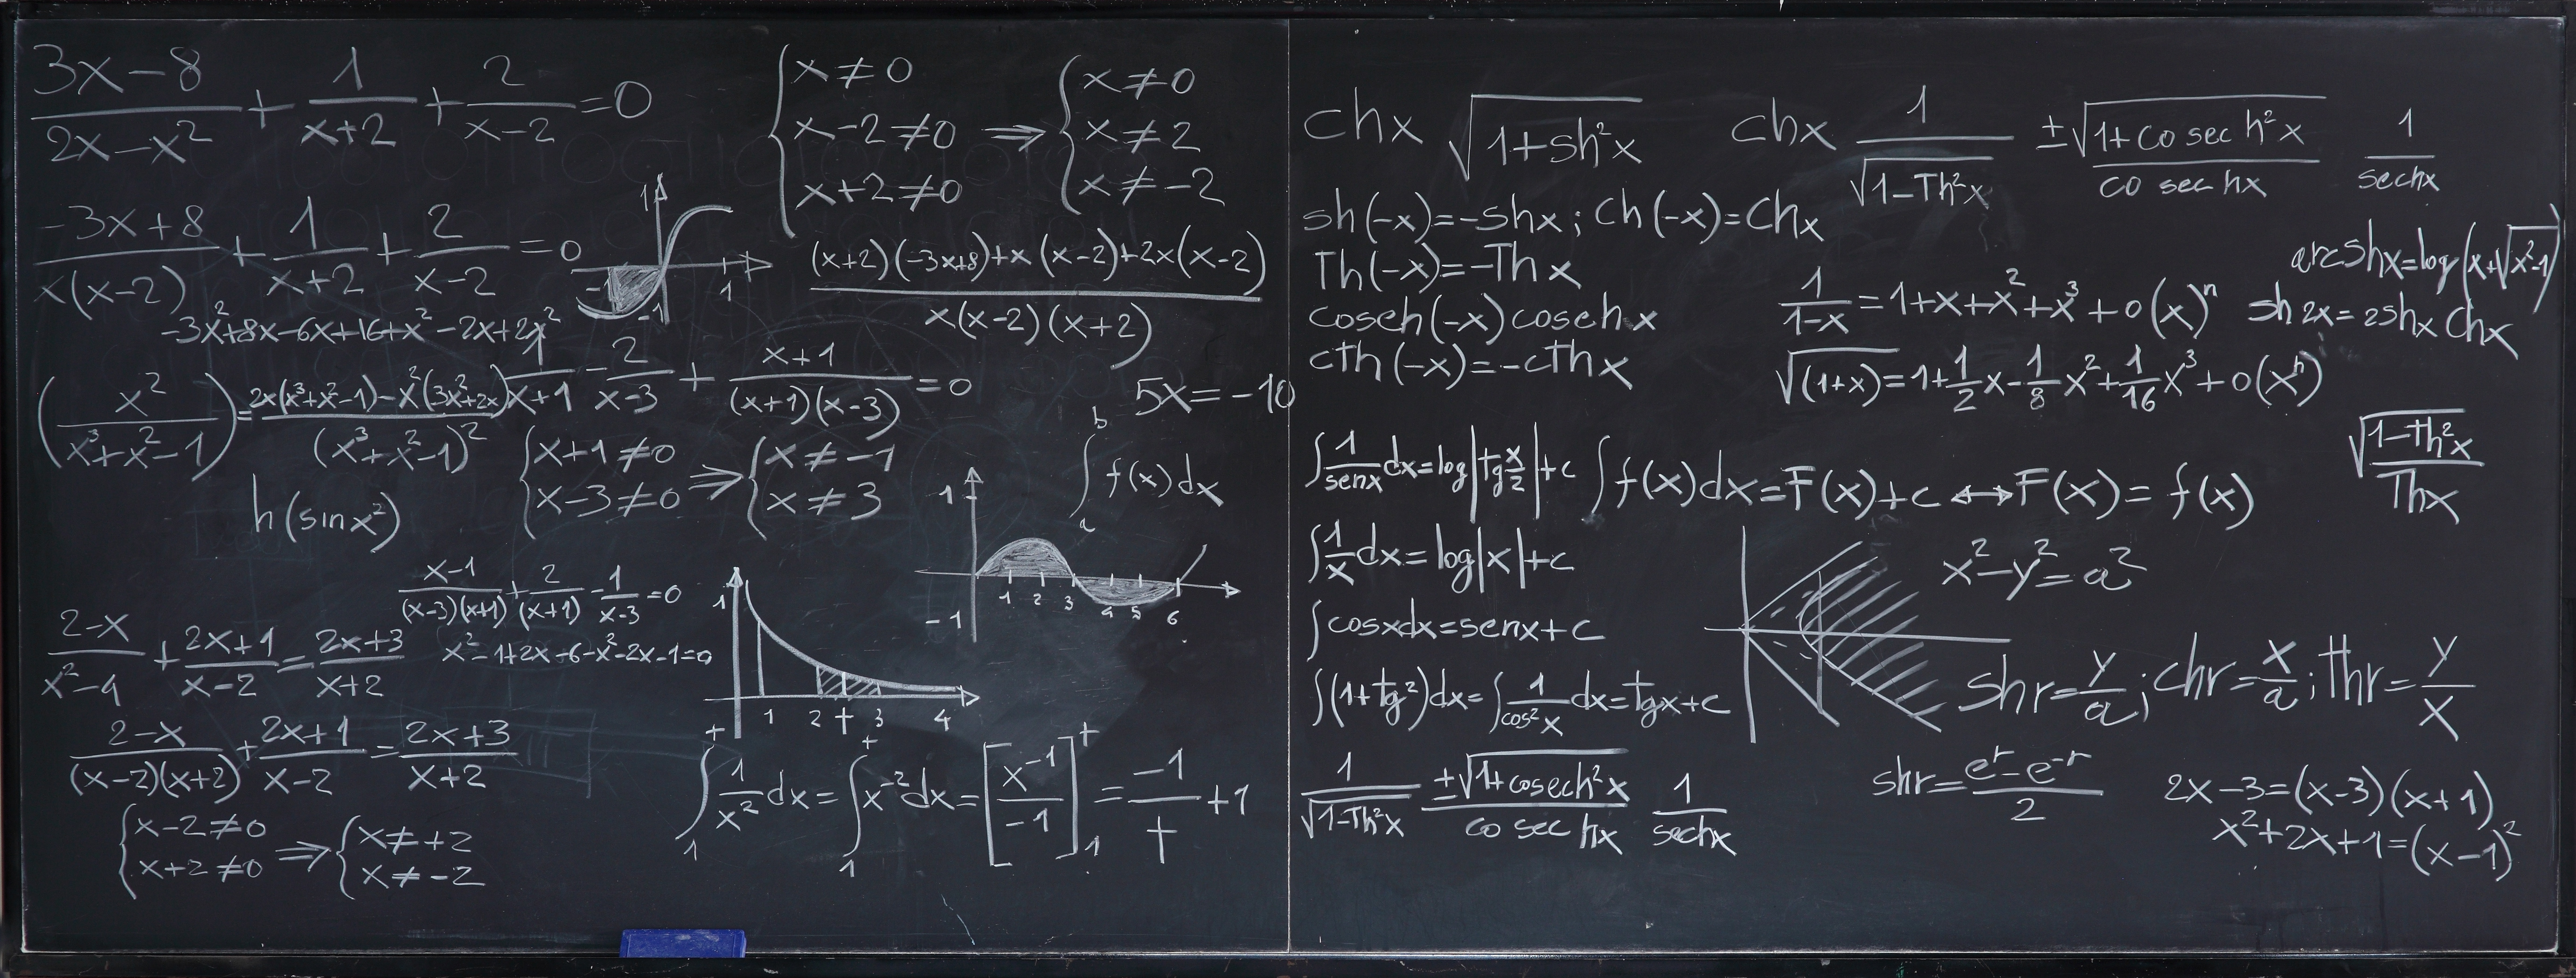 (3x-8)/(2x-x²) + 1/(x+2) + 2/(x-2) = 0
{x≠0 x-2≠0 x+2≠0 ⇒ {x≠0 x≠2 x≠-2
(-3x+8)/(x(x-2)) + 1/(x+2) + 2/(x-2) = 0
1 -1 -1 1
((x+2)(-3x+8)+x(x-2)+2x(x-2))/(x(x-2)(x+2))
-3x²+8x-6x+16+x²-2x+2x²
(x²/(x³+x²-1)) = (2x(x³+x²-1)-x²(3x²+2x))/(x³+x²-1)²
1/(x+1) - 2/(x-3) + (x+1)/((x+1)(x-3)) = 0
5x=-10
{x+1≠0 x-3≠0 ⇒ {x≠-1 x≠3
h(sinx²)
∫ₐᵇ f(x)dx
1 -1 1 2 3 4 5 6
(x-1)/((x-3)(x+1)) + 2/(x+1) - 1/(x-3) = 0
x²-1+2x-6-x²-2x-1=0
(2-x)/(x²-4) + (2x+1)/(x-2) = (2x+3)/(x+2)
1 1 2 t 3 4
(2-x)/((x-2)(x+2)) + (2x+1)/(x-2) = (2x+3)/(x+2)
{x-2≠0 x+2≠0 ⇒ {x≠+2 x≠-2
∫₁ᵗ 1/x² dx = ∫₁ᵗ x⁻² dx = [x⁻¹/-1]₁ᵗ = -1/t + 1
chx √(1+sh²x)
chx 1/√(1-Th²x) ±√(1+cosech²x)/cosechx 1/sechx
sh(-x)=-shx; ch(-x)=chx
Th(-x)=-Thx
cosech(-x)cosechx
cth(-x)=-cthx
arcshx=log(x+√(x²-1))
sh2x=2shx chx
1/(1-x)=1+x+x²+x³+o(x)ⁿ
√(1+x)=1+1/2x-1/8x²+1/16x³+o(xⁿ)
√(1-Th²x)/Thx
∫1/senx dx=log|tg x/2|+c
∫f(x)dx=F(x)+c↔F(x)=f(x)
∫1/x dx=log|x|+c
∫cosxdx=senx+c
∫(1+tg²)dx=∫1/cos²x dx=tgx+c
x²-y²=a²
shr=y/a; chr=x/a; thr=y/x
1/√(1-Th²x) ±√(1+cosech²x)/cosechx 1/sechx
shr=(eʳ-e⁻ʳ)/2
2x-3=(x-3)(x+1)
x²+2x+1=(x-1)²